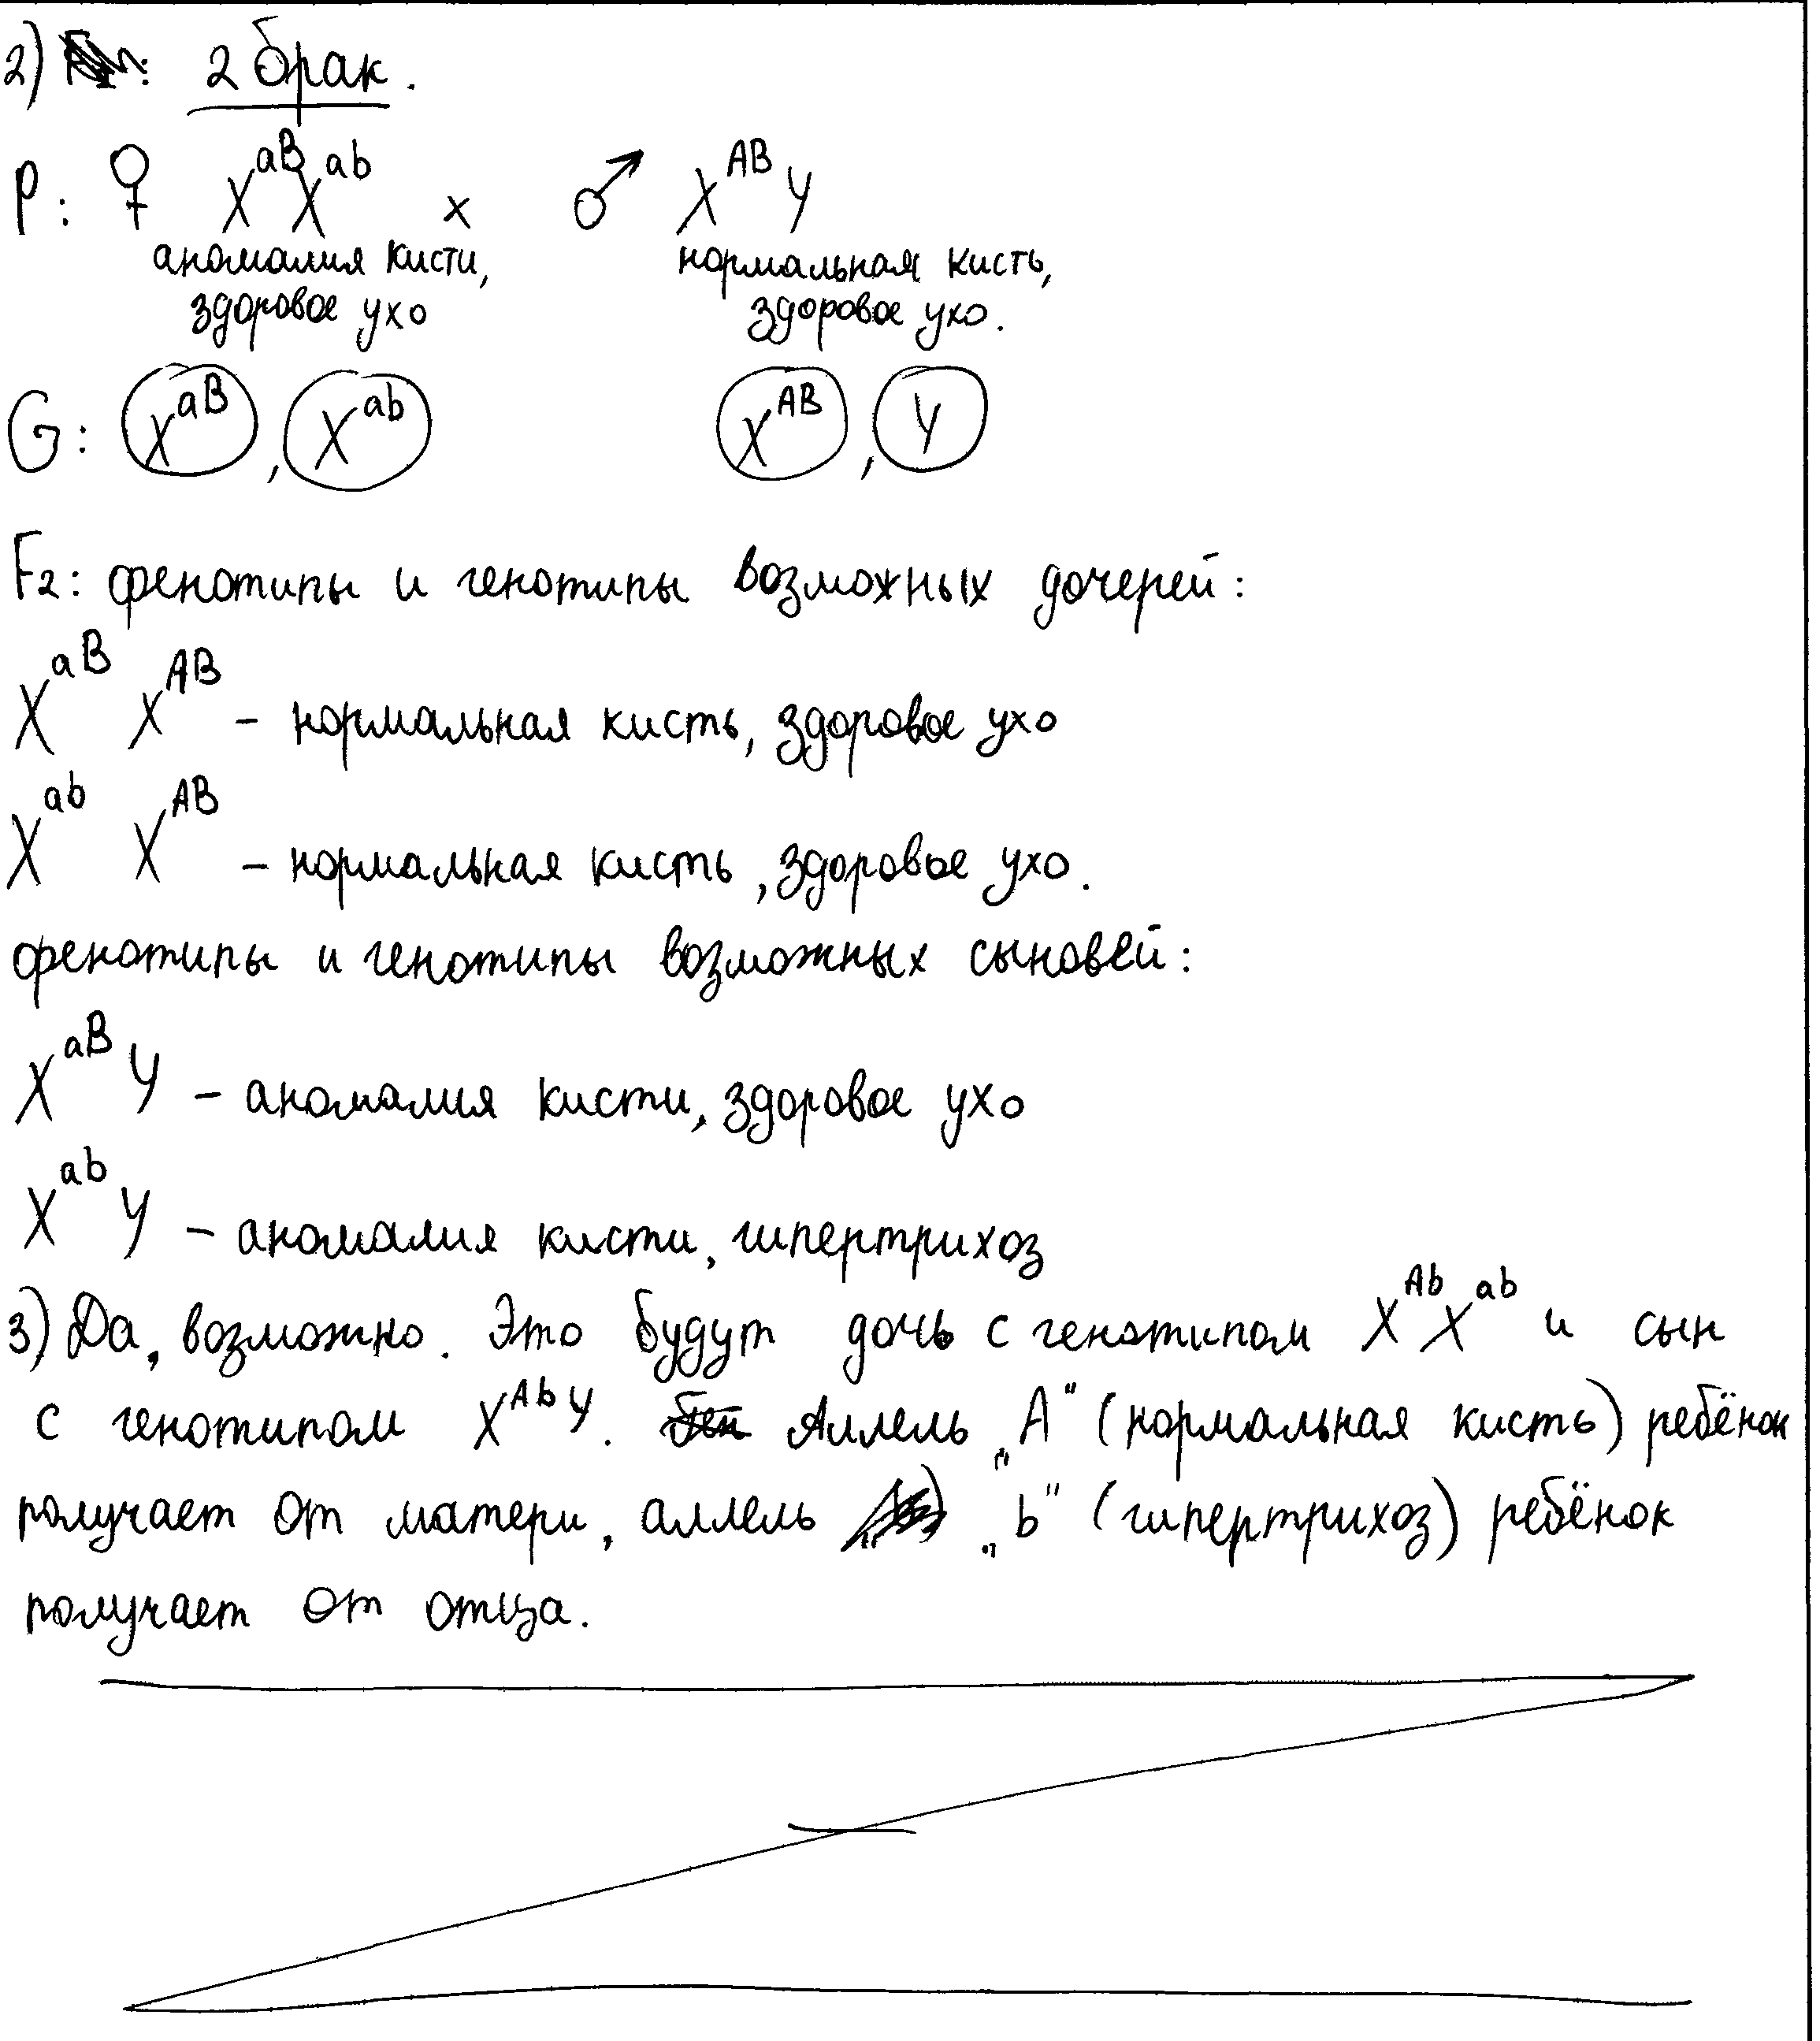 2) 2 брак.
P: ♀ X^aB X^ab × ♂ X^AB Y
аномалия кисти, нормальная кисть,
здоровое ухо здоровое ухо.
G: X^aB, X^ab X^AB, Y
F2: фенотипы и генотипы возможных дочерей:
X^aB X^AB – нормальная кисть, здоровое ухо
X^ab X^AB – нормальная кисть, здоровое ухо.
фенотипы и генотипы возможных сыновей:
X^aB Y – аномалия кисти, здоровое ухо
X^ab Y – аномалия кисти, гипертрихоз
3) Да, возможно. Это будут дочь с генотипом X^Ab X^ab и сын
с генотипом X^Ab Y. Аллель „A" (нормальная кисть) ребёнок
получает от матери, аллель „b" (гипертрихоз) ребёнок
получает от отца.